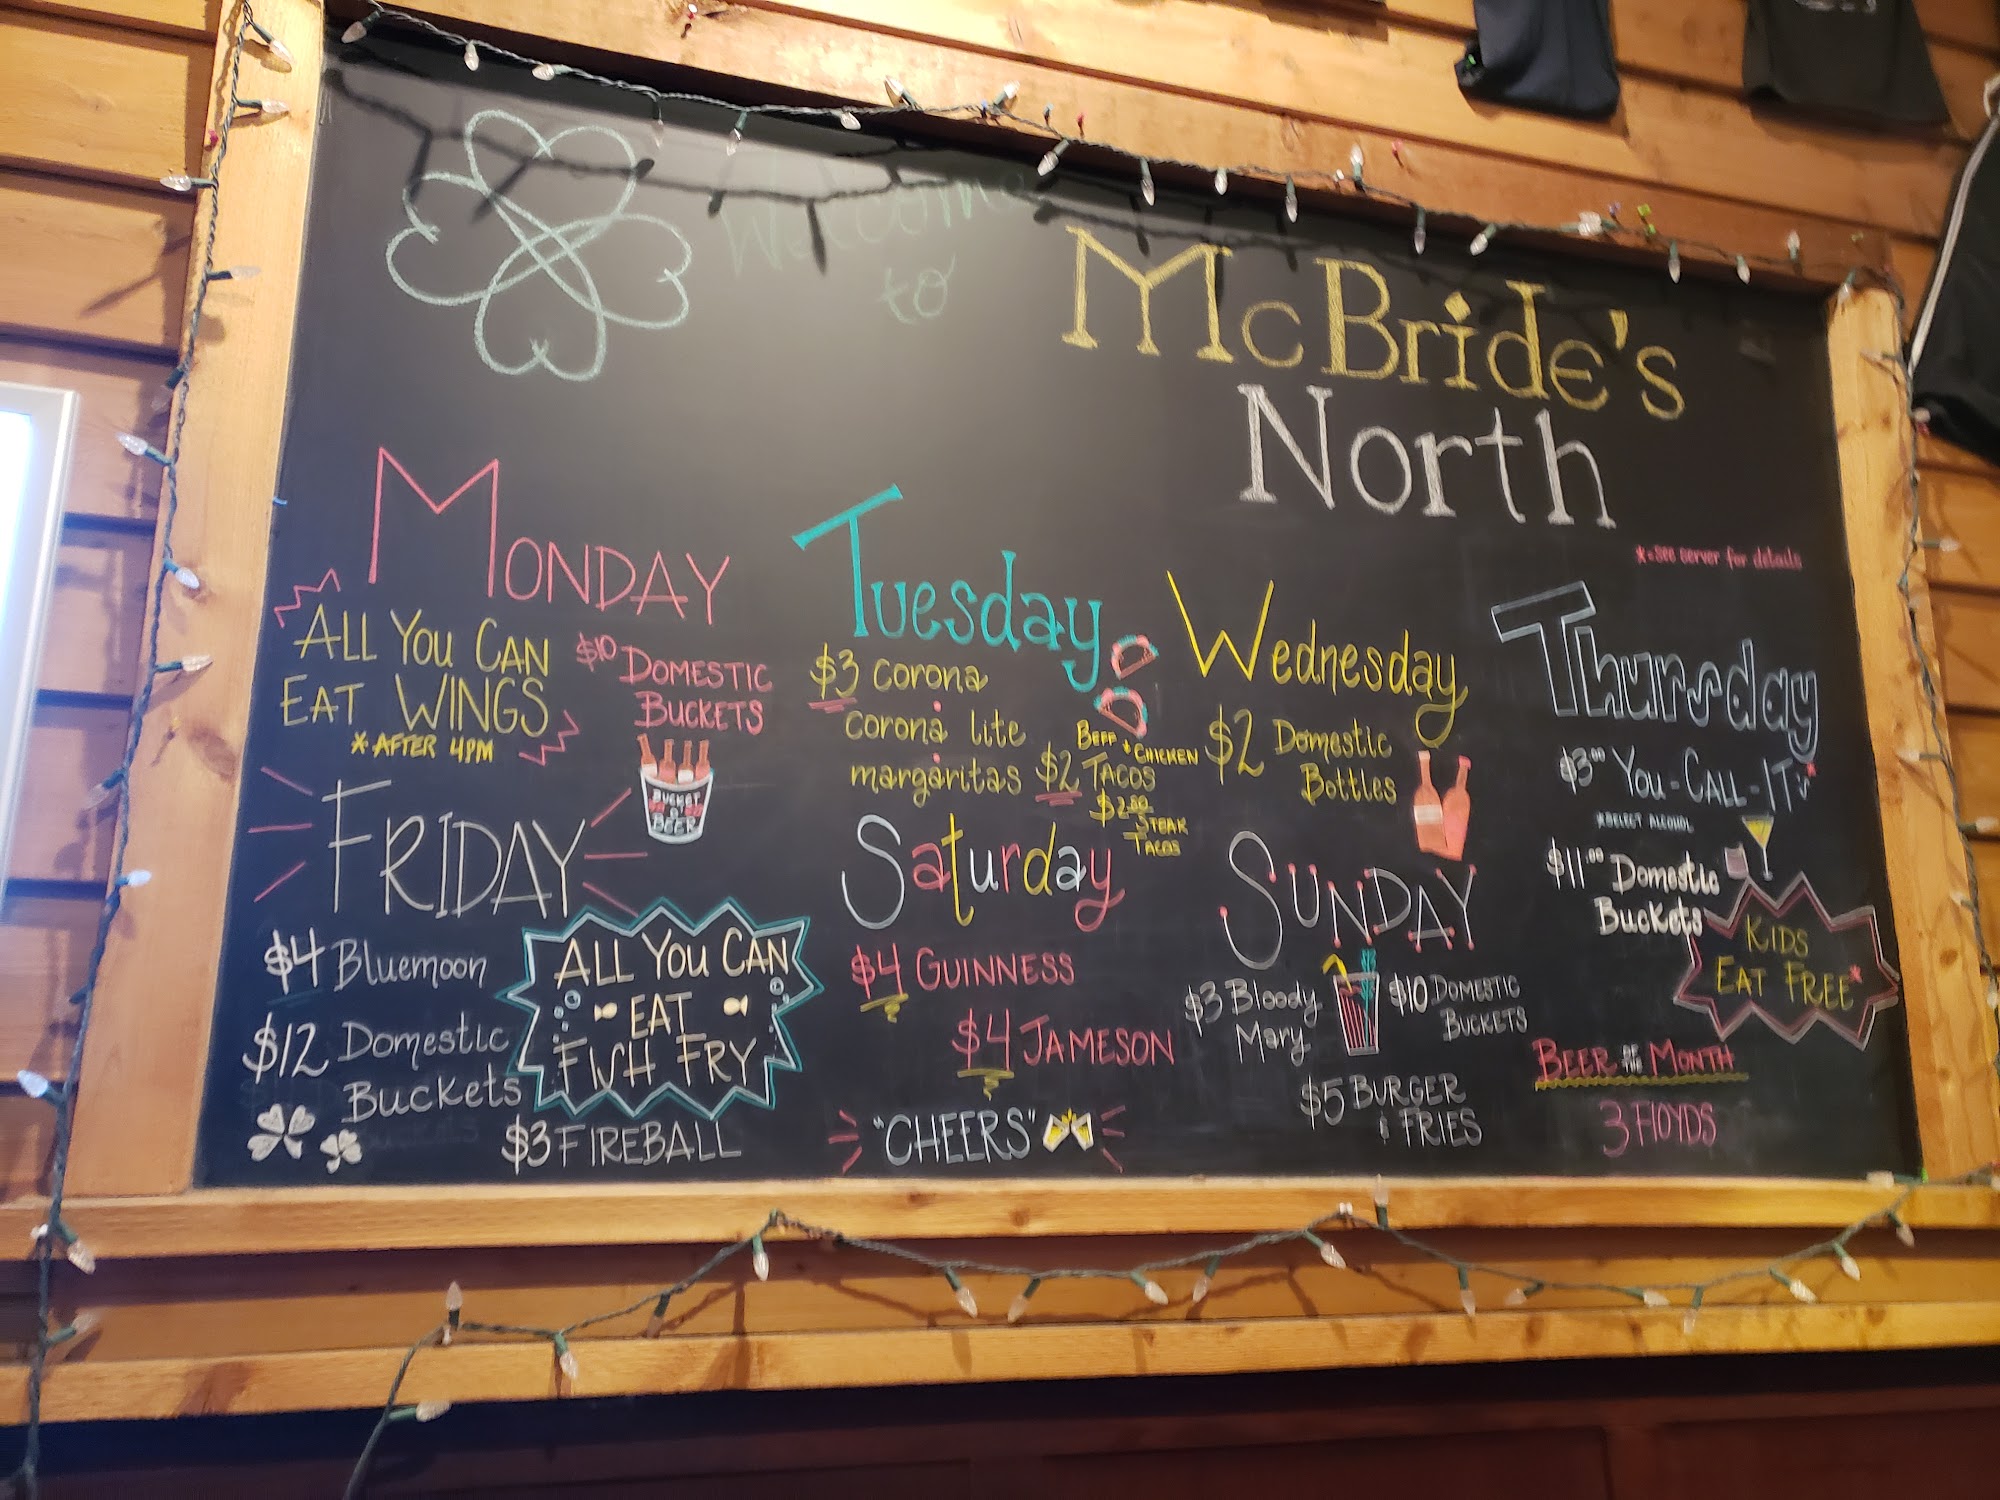 Welcome
to
McBride's
North
*=see server for details
Monday
ALL YOU CAN
EAT WINGS
*AFTER 4PM
$10 DOMESTIC
BUCKETS
BUCKET
O'
BEER
Tuesday
$3 corona
corona lite
margaritas
BEEF + CHICKEN
$2 TACOS
$2.50
STEAK
TACOS
Wednesday
$2 Domestic
Bottles
Thursday
$3.00 YOU-CALL-IT*
*SELECT ALCOHOL
$11.00 Domestic
Buckets
KIDS
EAT FREE*
BEER OF THE MONTH
3 FLOYDS
FRIDAY
$4 Bluemoon
$12 Domestic
Buckets
ALL YOU CAN
EAT
FISH FRY
$3 FIREBALL
Saturday
$4 GUINNESS
$4 JAMESON
"CHEERS"
SUNDAY
$3 Bloody
Mary
$10 DOMESTIC
BUCKETS
$5 BURGER
& FRIES